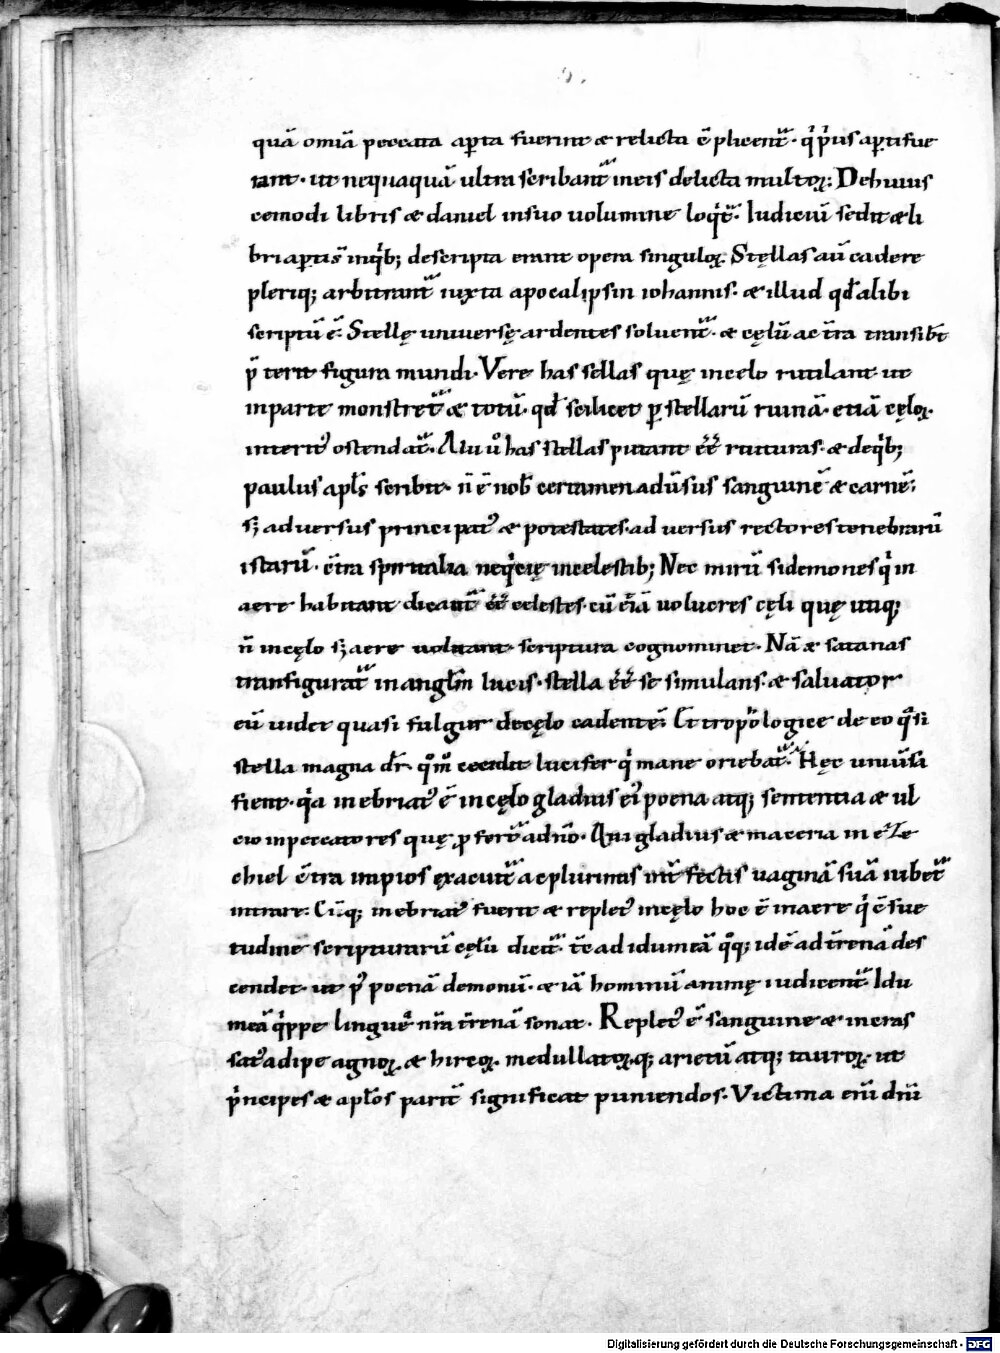 quā omiā peccata aꝑta fuerint & relicta ē plicent᷑· qͥ pͥus aꝑti fue
rant· ut nequaquā ultra scribant᷑ in eis delicta multoꝝ; De huius
cemodi libris & daniel in suo uolumine loqͥt᷑· Iudiciū sedit & li
bri aꝑti s̄ in qͥb; descripta erant opera singuloꝝ. Stęllas aū cadere
pleriq; arbitrant᷑ iuxta apocalipsin iohannis· & illud qđ alibi
scriptū ē· Stellę uniuersę ardentes soluent᷑· & cęlū ac t̄ra transibt̄
p̄terit figura mundi· Vere has sellas quę in celo rutilant ut
in parte monstret᷑ & totū· qđ scilicet ꝑ stellarū ruinā· etiā cęloꝝ
interitꝰ ostendat᷑. Alii u͛o has stellas putant ee͛ ruituras· & de qͥb;
paulus apl̄s scribit· n̄ ē nob̄ certamen adū͛sus sanguinē & carnē·
sꝫ aduersus principatꝰ & potestates· ad uersus rectores tenebrarū
istarū· c̄tra spiritalia neqͥcię in celestib; Nec mirū si demones qͥ in
aere habitant dicant᷑ ee͛ celestes· cū & iā uolucres cęli quę utiq;
n̄ in cęlo sꝫ aere uolitant· scriptura cognominet· Nā & satanas
tranfigurat᷑ in angl̄m lucis· stella ee͛ se simulans· & saluator
eū uidet quasi fulgur de cęlo cadentē· Et tropologice de eo qͣsi
stella magna dr̄· qͦm̊ cecidit lucifer qͥ mane oriebat᷑· Hęc uniū͛sa
fient· qͥa inebriatꝰ ē in cęlo gladius ei᷒ poena atq; sententia & ul
cio in peccatores quę ꝓfert᷑ a dn̄o· Qui gladius & maceria in eze
chiel c̄tra impios exacuit᷑ ac plurimis int͛fectis uaginā suā iubet᷑
intrare· Cūq; inebriatꝰ fuerit & repletꝰ in cęlo hoc ē in aere qͥ c̄sue
tudine scripturarū cęlū dicit᷑· tc̄ ad idumeā qͦq; idē ad t̄renā des
cendet· ut pꝰ poenā demonū· & iā hominū animę iudicent᷑· Idu
meā qͥppe linguę nr̄a t̄renā sonat· Repletꝰ ē sanguine & incras
satꝰ adipe agnoꝝ & hircoꝝ· medullatoꝝ q; arietū atq; tauroꝝ· ut
pͥncipes & apl̄os parit᷑ significat puniendos· Victima eni͛ dn̄i
Digitalisierung gefördert durch die Deutsche Forschungsgemeinschaft - DFG